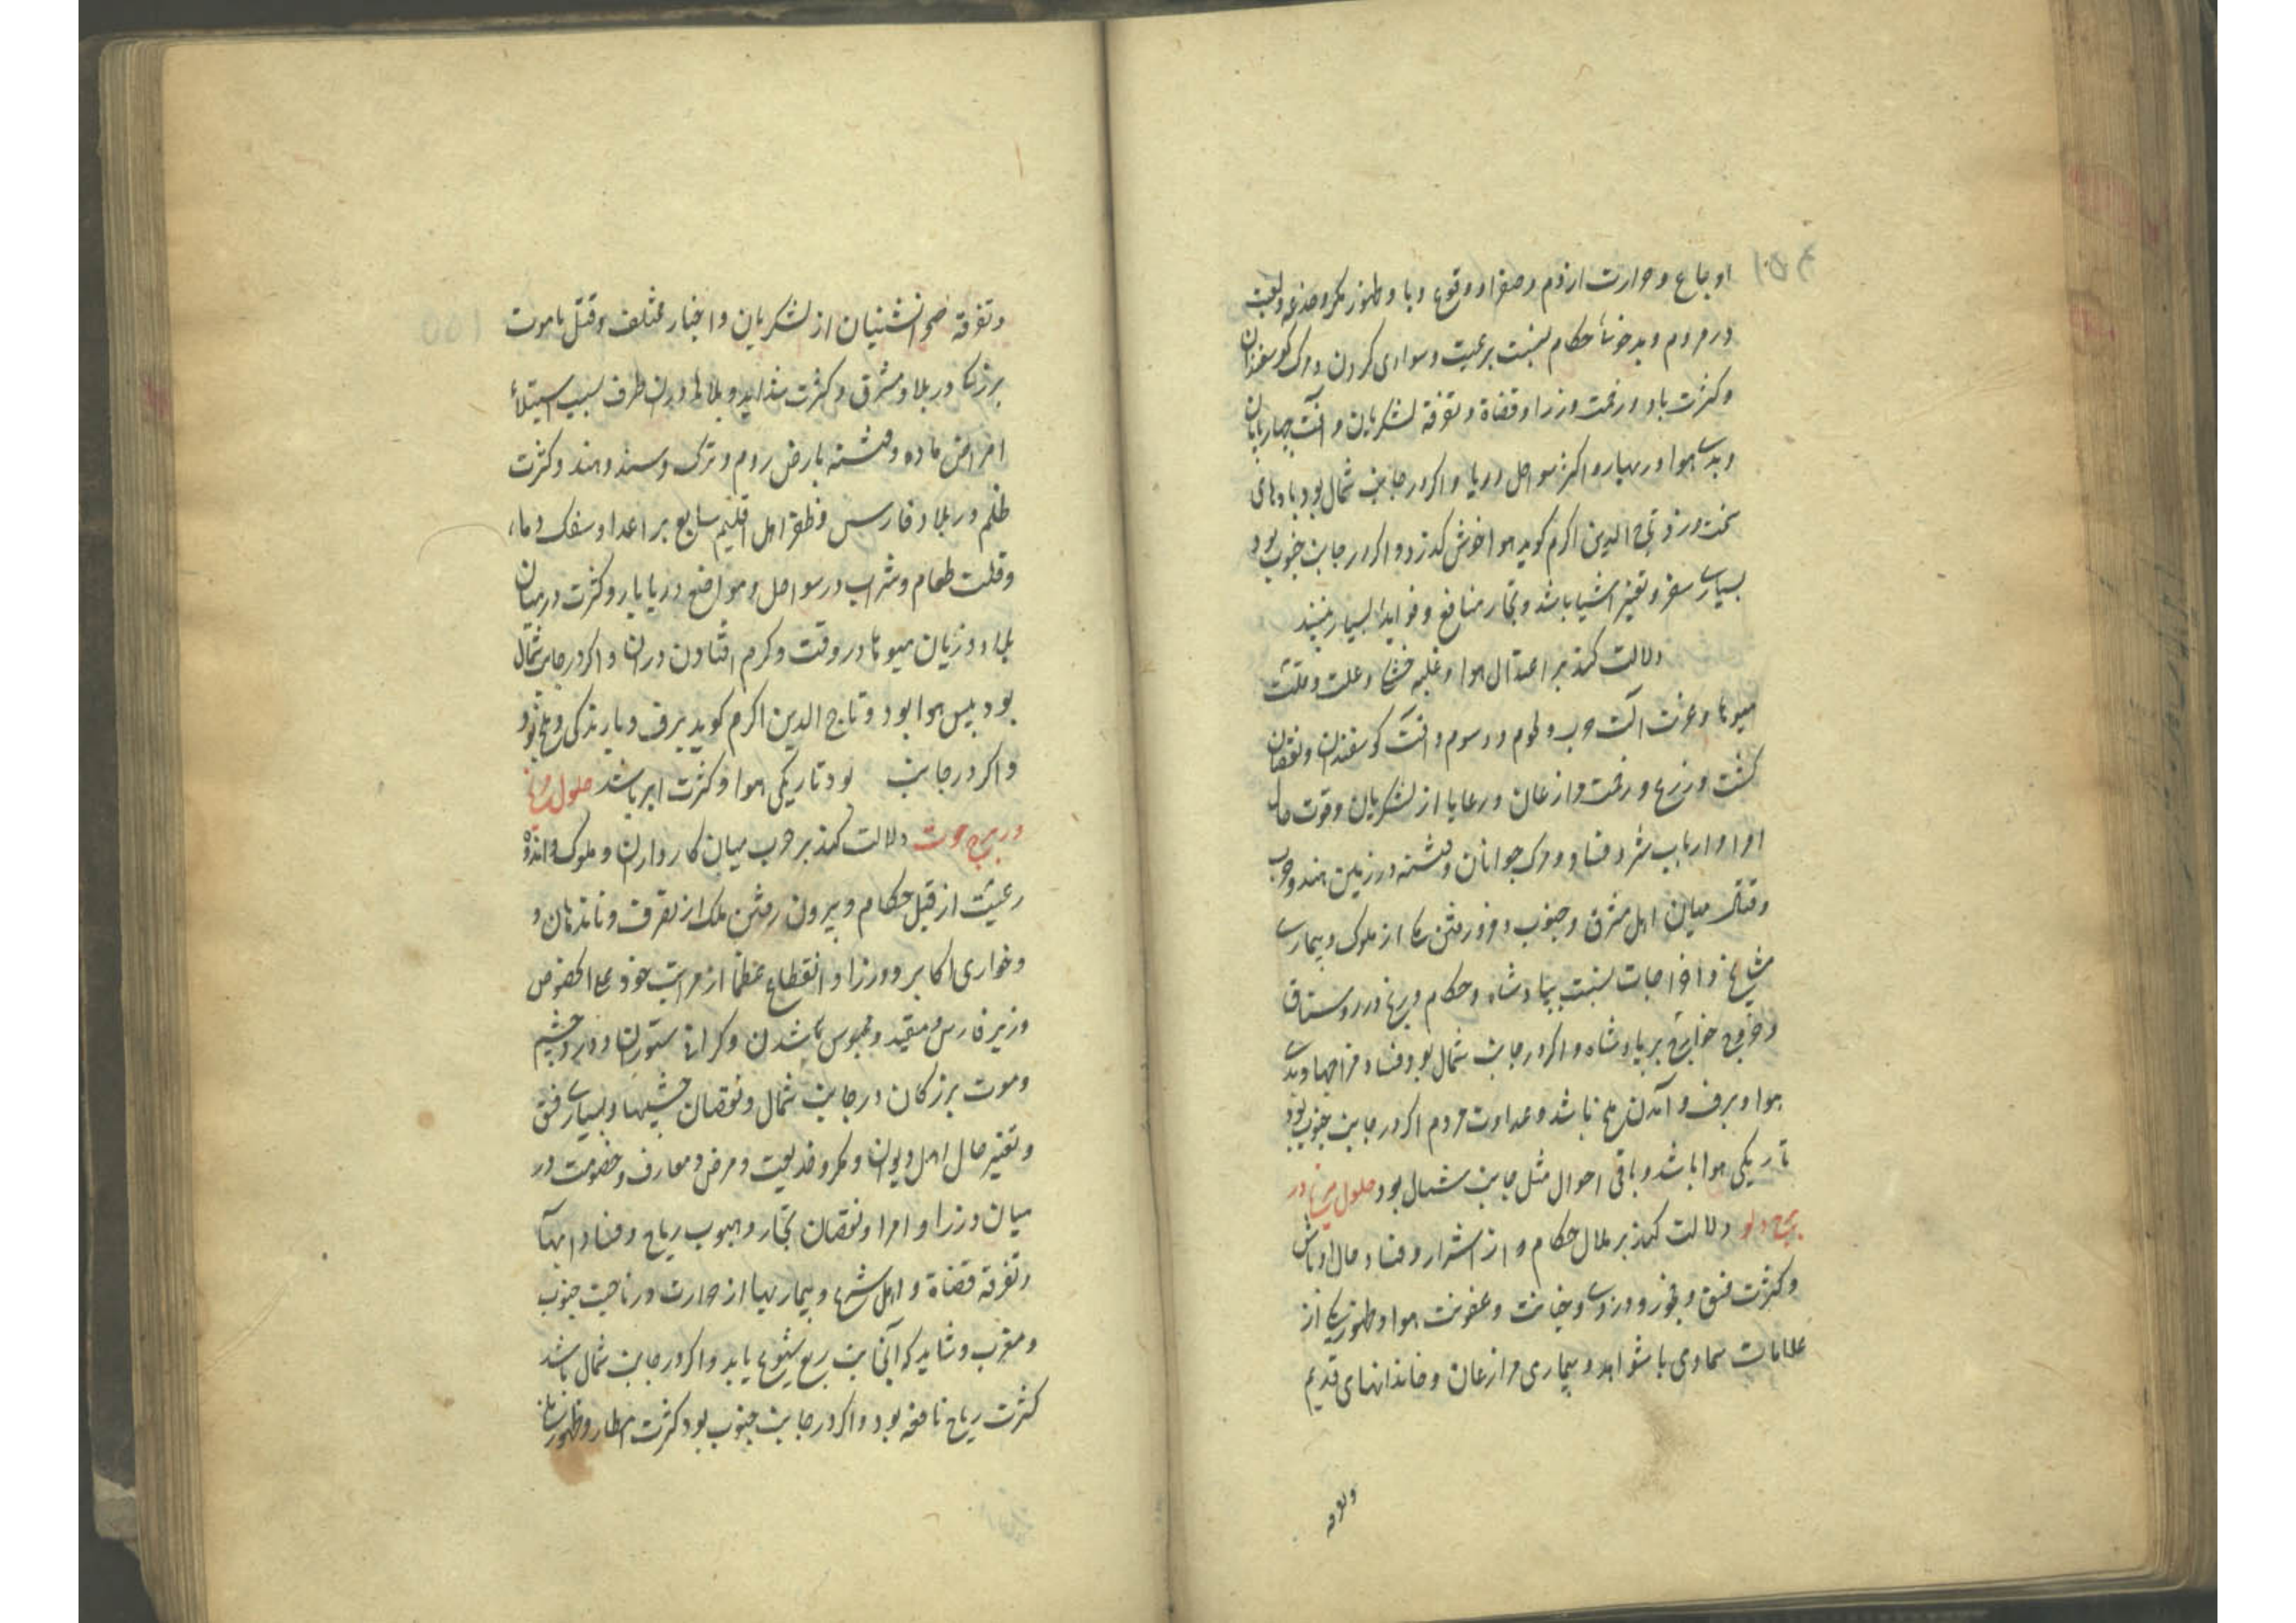 اوجاع و حرارت از دم و صفرا و وقوع وبا و ظهور مکر و خدیعت
در مردم و بدخوئ حکام نسبت برعیت و سواری کردن و مرک کوسفندان
و کثرت باد و زحمت وزرا و قضاة و تفرقه لشکریان و آفت چهارپایان
و بدی هوا در بهار و اکثر سواحل دریا و اکر در جانب شمال بود بادهای
سخت وزد تاج الدین اکرم کوید هوا خوش کذرد و اکر در جانب جنوب بود
بسیاری سفر و تغیر اشیا باشد و تجار منافع و فواید بسیار بینند
دلالت کند بر اعتدال هوا و غلبه و علت و قلت
میوها و عزت آلت حرب و لحوم و دسوم و آفت کوسفندان و نقصان
کشت و زرع و زحمت مزارعان و رعایا از لشکریان و قوت حال
امرا و ارباب شر و فساد و مرک جوانان و فتنه در زمین هند و حرب
و قتال میان اهل مشرق و جنوب و فرو رفتن یکی از ملوک و بیماری
مشایخ و اخراجات نسبت بپادشاه و حکام و رنج در روستاق
و خروج خوارج بر پادشاه و اکر در جانب شمال بود فساد مزاجها و بدی
هوا و برف و آمدن ملخ باشد و عداوت مردم اکر در جانب جنوب بود
تاریکی هوا باشد و باقی احوال مثل جانب شمال بود حلول مریخ در
برج دلو دلالت کند بر ملال حکام و از اشرار و فساد حال اوباش
و کثرت فسق و فجور و دزدی و خیانت و عفونت هوا و ظهور یکی از
علامات سماوی با شواهد و بیماری مزارعان و خاندانهای قدیم
وتفرقه
وتفرقه صحرانشینیان از لشکریان و اخبار مختلف و قتل یا موت
بزرکی در بلاد مشرق و کثرت شداید و بلاها دران طرف بسبب استیلاء
امراض حاده و فتنه بارض روم و ترک و سند و هند و کثرت
ظلم در بلاد فارس و ظفر اهل اقلیم سابع بر اعدا و سفک دماء
و قلت طعام و شراب در سواحل و مواضع دریابار و کثرت در میان
بلاد و زیان میوها در وقت و کرم افتادن دران و اکر در جانب شمال
بود یبس هوا بود و تاج الدین اکرم کوید برف و بارندکی و ملخ بود
و اکر در جانب بود تاریکی هوا و کثرت ابر باشد حلول مریخ
در برج حوت دلالت کند بر حرب میان کارداران و ملوک و اندوه
رعیت از قبل حکام و بیرون رفتن ملک از تصرف و
و خواری اکابر و وزرا و انقطاع عظما از مراتب خود علی الخصوص
وزیر فارس و مقید و محبوس شدن و کرانی ستوران و درد چشم
و موت بزرکان در جانب شمال و نقصان چشمها و بسیاری فسق
و تغیر حال اهل دیوان و مکر و خدیعت و مرض معارف و خصومت در
میان وزرا و امرا و نقصان تجار و هبوب ریاح و فساد آبها
و تفرقه قضاة و اهل شرع و بیماریها از حرارت در ناحیت جنوب
و مغرب و شاید که آنجانب ربع شیوع یابد و اکر در جانب شمال باشد
کثرت ریاح نافعه بود و اکر در جانب جنوب بود کثرت امطار و ظهور